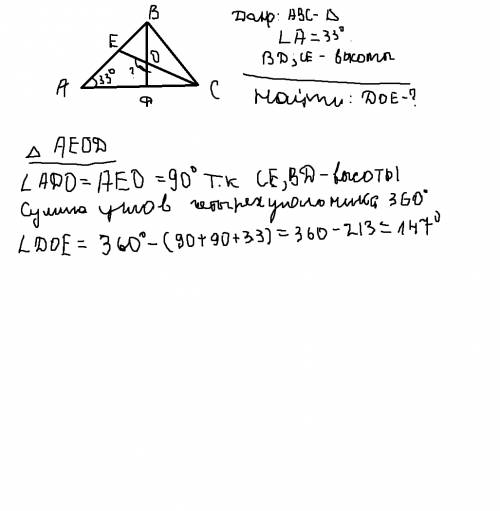 B
Дано: ABC - Δ
E
∠A = 33°
O
BD, CE - высоты
33°
?
A
C
D
Найти: DOE - ?
Δ AEOD
∠ADO = AEO = 90° т.к CE, BD - высоты
Сумма углов четырехугольника 360°
∠DOE = 360° - (90 + 90 + 33) = 360 - 213 = 147°